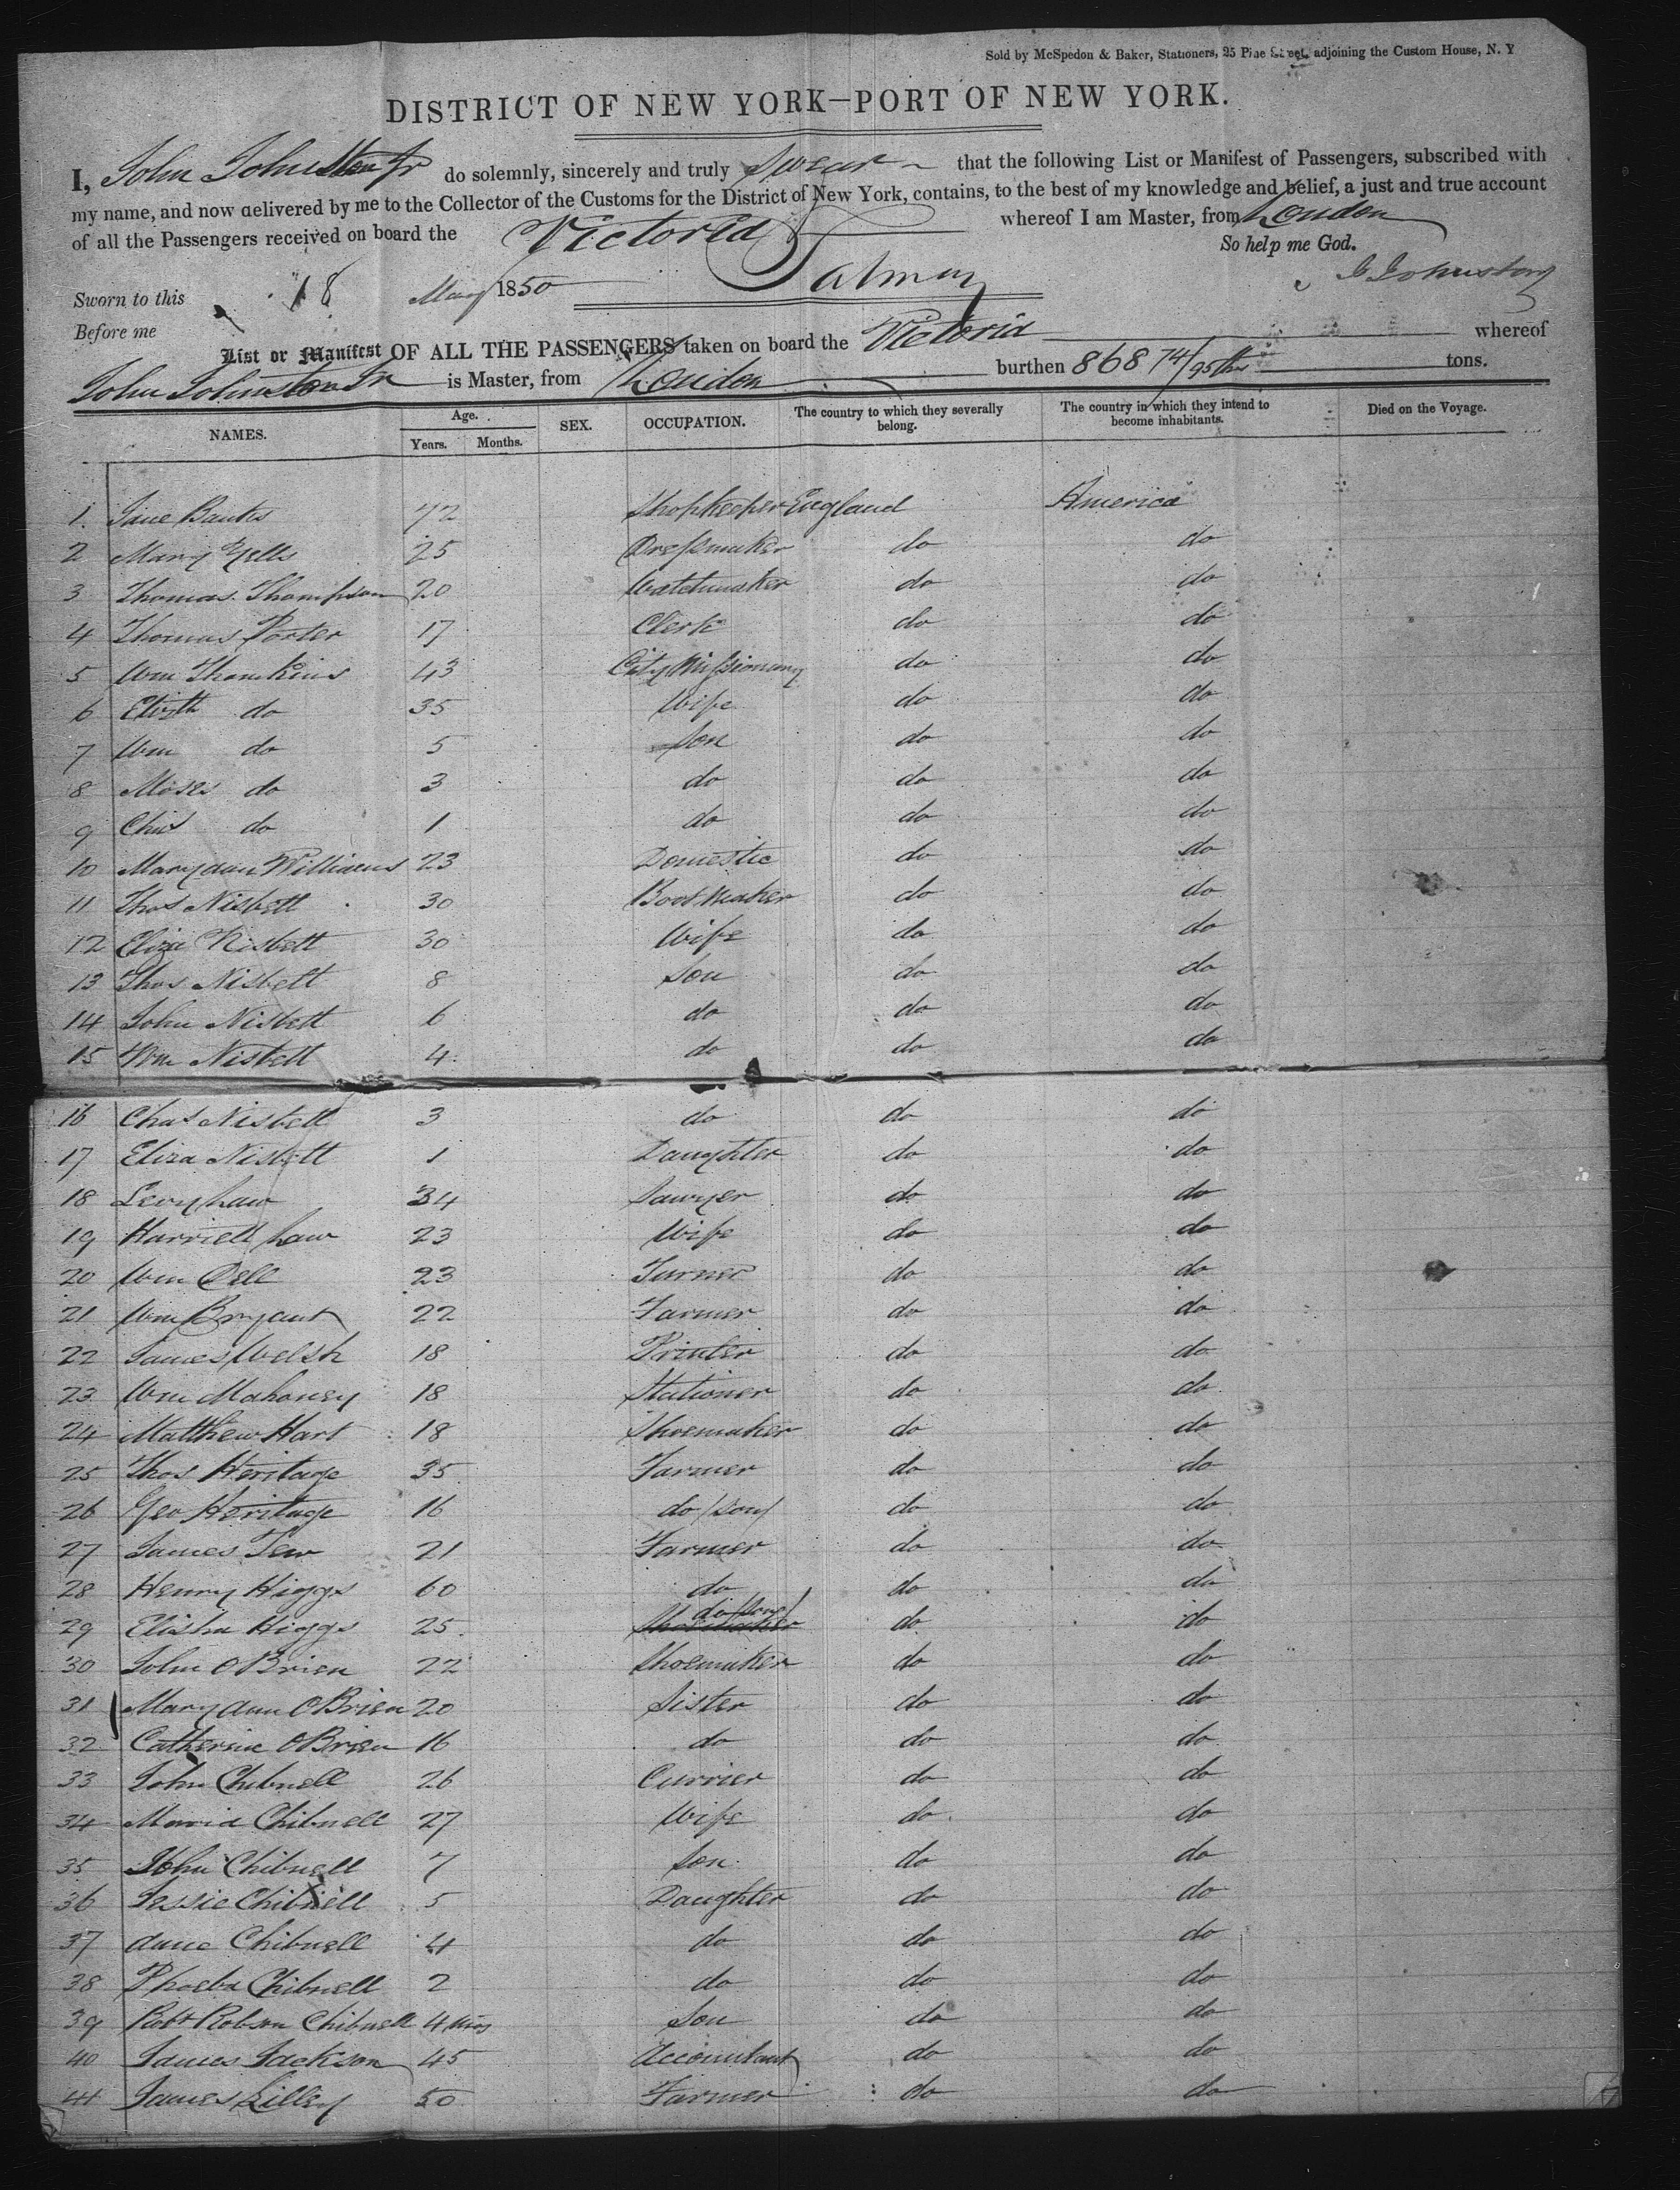 Sold by McSpedon & Baker, Stationers, 25 Pine Street, adjoining the Custom House, N. Y
DISTRICT OF NEW YORK—PORT OF NEW YORK.
I, John Johnston Jr do solemnly, sincerely and truly Swear that the following List or Manifest of Passengers, subscribed with
my name, and now delivered by me to the Collector of the Customs for the District of New York, contains, to the best of my knowledge and belief, a just and true account
of all the Passengers received on board the Victoria whereof I am Master, from London
So help me God.
Sworn to this 18 May 1850 J Johnston
Before me
List or Manifest OF ALL THE PASSENGERS taken on board the Victoria whereof
John Johnston Jr is Master, from London burthen 868 74/95ths tons.
NAMES. Age. Years. Months. SEX. OCCUPATION. The country to which they severally belong. The country in which they intend to become inhabitants. Died on the Voyage.
1 Jane Banks 72 Shopkeeper England America
2 Mary Yells 25 Dressmaker do do
3 Thomas Thompson 20 Watchmaker do do
4 Thomas Porter 17 Clerk do do
5 Wm Thomkins 43 City Missionary do do
6 Elizth do 35 Wife do do
7 Wm do 5 Son do do
8 Moses do 3 do do do
9 Chas do 1 do do do
10 Mary ann Williams 23 Domestic do do
11 Thos Nisbett 30 Bootmaker do do
12 Eliza Nisbett 30 Wife do do
13 Thos Nisbett 8 Son do do
14 John Nisbett 6 do do do
15 Wm Nisbett 4 do do do
16 Chas Nisbett 3 do do do
17 Eliza Nisbett 1 Daughter do do
18 Levy Law 34 Sawyer do do
19 Harriett Law 23 Wife do do
20 Wm Dell 23 Turner do do
21 Wm Bryant 22 Farmer do do
22 James Welsh 18 Printer do do
23 Wm Mahoney 18 Stationer do do
24 Matthew Hart 18 Shoemaker do do
25 Thos Heritage 35 Farmer do do
26 Geo Heritage 16 do /son/ do do
27 James Tew 21 Farmer do do
28 Henry Higgs 60 do do do
29 Elisha Higgs 25 do /son/ do do
30 John OBrien 22 Shoemaker do do
31 Mary ann OBrien 20 Sister do do
32 Catherine OBrien 16 do do do
33 John Chibnell 26 Currier do do
34 Maria Chibnell 27 Wife do do
35 John Chibnell 7 Son do do
36 Jessie Chibnell 5 Daughter do do
37 Anne Chibnell 4 do do do
38 Phoeba Chibnell 2 do do do
39 Robt Robson Chibnell 4 mos Son do do
40 James Jackson 45 Accountant do do
41 James Lilley 50 Farmer do do